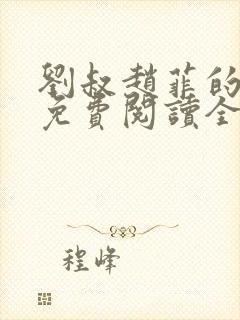 劉叔趙菲的
免費閱讀全
程峰